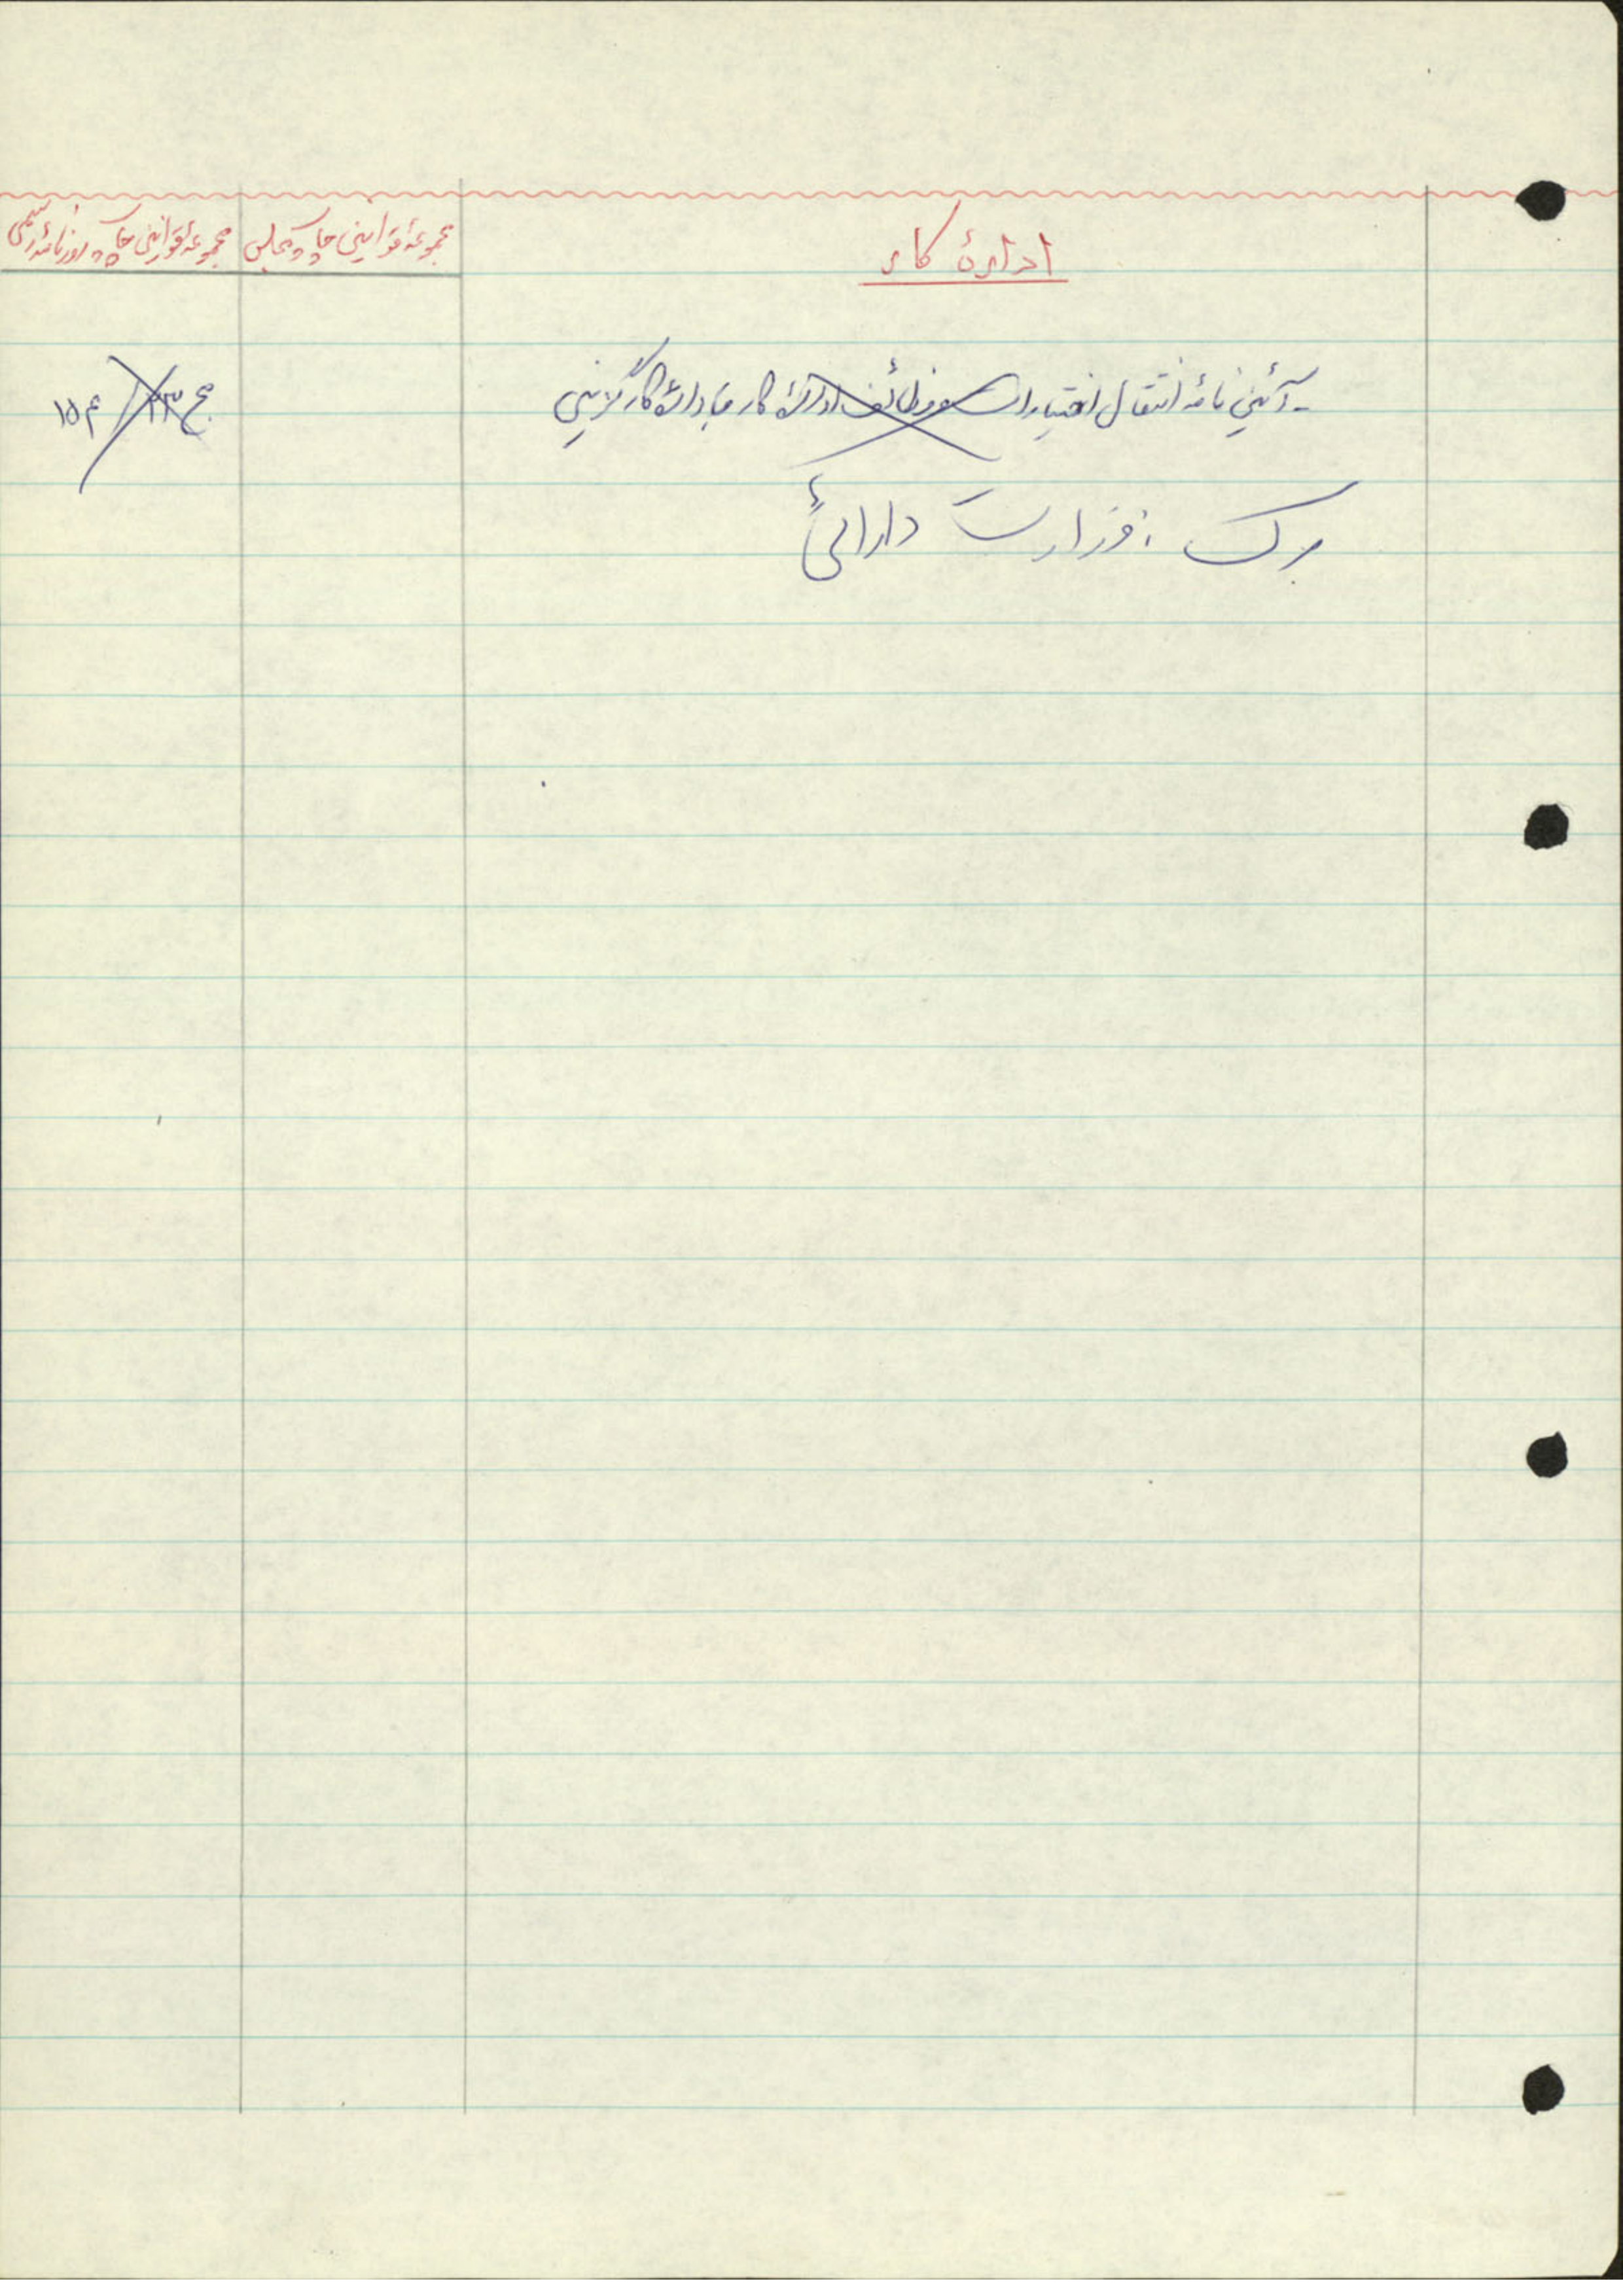 ادارهٔ کار
مجموعهٔ قوانین چاپ مجلس
مجموعهٔ قوانین چاپ روزنامهٔ رسمی
- آئین نامهٔ انتقال اختیارات و وظائف ادارهٔ کار به ادارهٔ کارگزینی
ج ۲۳ ص ۱۵۴
برگ : وزارت دارائی